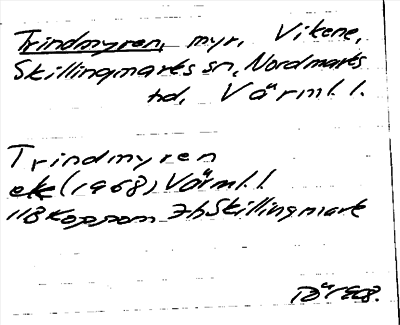 Trindmyren, myr, Vikene,
Skillingmarks sn, Nordmarks
hd, Värml. l.
Trindmyren
ek (1968) Värml. l.
11B Koppom 7b Skillingmark